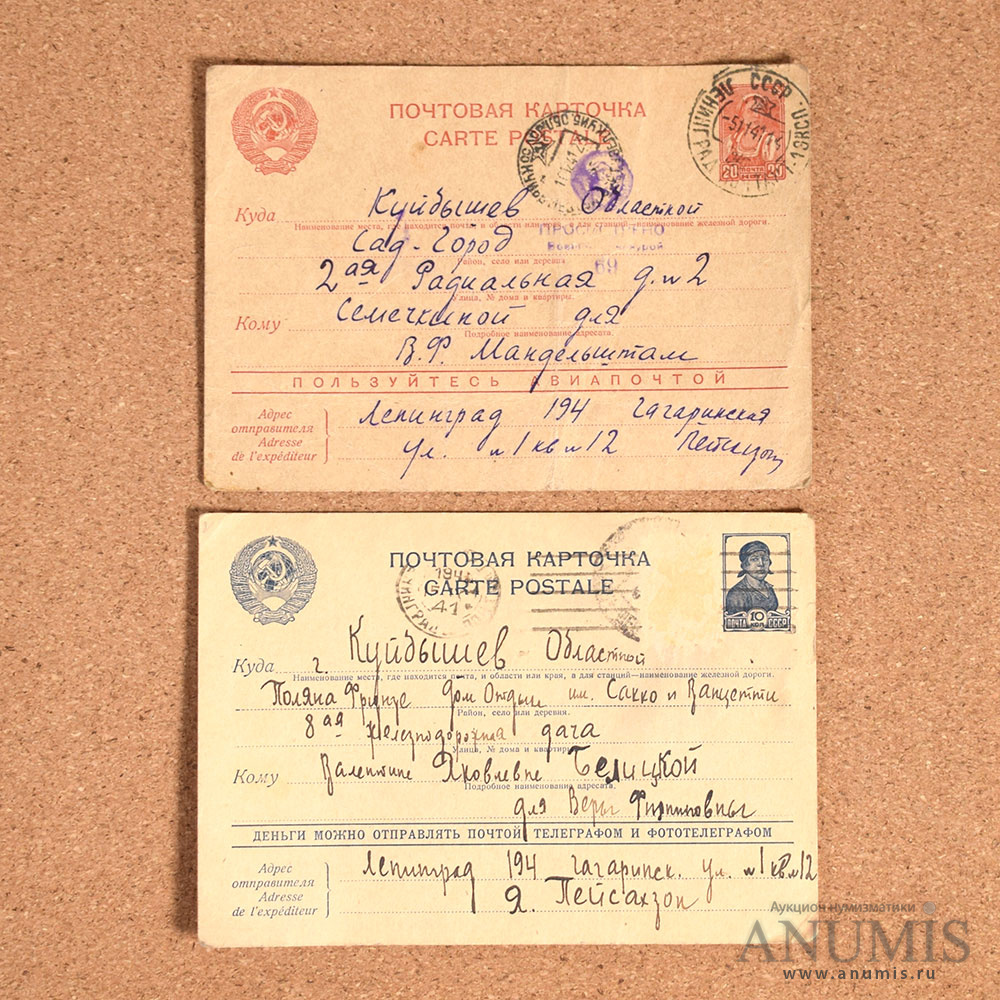 ПОЧТОВАЯ КАРТОЧКА
CARTE POSTALE
ЛЕНИНГРАД СССР
20 ПОЧТА 20
Куда Куйбышев Областной
Наименование места, где находится почта, и области или края, а для станций—наименование железной дороги.
ПРОСМОТРЕНО
Сад-Город
Военной Цензурой
69
Район, село или деревня.
2ая Радиальная д. №2
Улица, № дома и квартиры.
Кому Семечкиной для
Подробное наименование адресата.
В.Ф. Мандельштам
ПОЛЬЗУЙТЕСЬ АВИАПОЧТОЙ
Адрес отправителя
Adresse de l'expéditeur
Ленинград 194 Гагаринская
ул. №1 кв №12
ПОЧТОВАЯ КАРТОЧКА
CARTE POSTALE
ПОЧТА 10 КОП. СССР
Куда г. Куйбышев Областной
Наименование места, где находится почта, и области или края, а для станций—наименование железной дороги.
Поляна Фрунзе Дом Отдых им. Сакко и Ванцетти
Район, село или деревня.
8ая железнодорожная дача
Улица, № дома и квартиры.
Кому Валентине Яковлевне Белицкой
Подробное наименование адресата.
для Веры Филипповны
ДЕНЬГИ МОЖНО ОТПРАВЛЯТЬ ПОЧТОЙ ТЕЛЕГРАФОМ И ФОТОТЕЛЕГРАФОМ
Адрес отправителя
Adresse de l'expéditeur
Ленинград 194 Гагаринск. ул. №1 кв №12
Я. Пейсахзон
Аукцион нумизматики
ANUMIS
www.anumis.ru